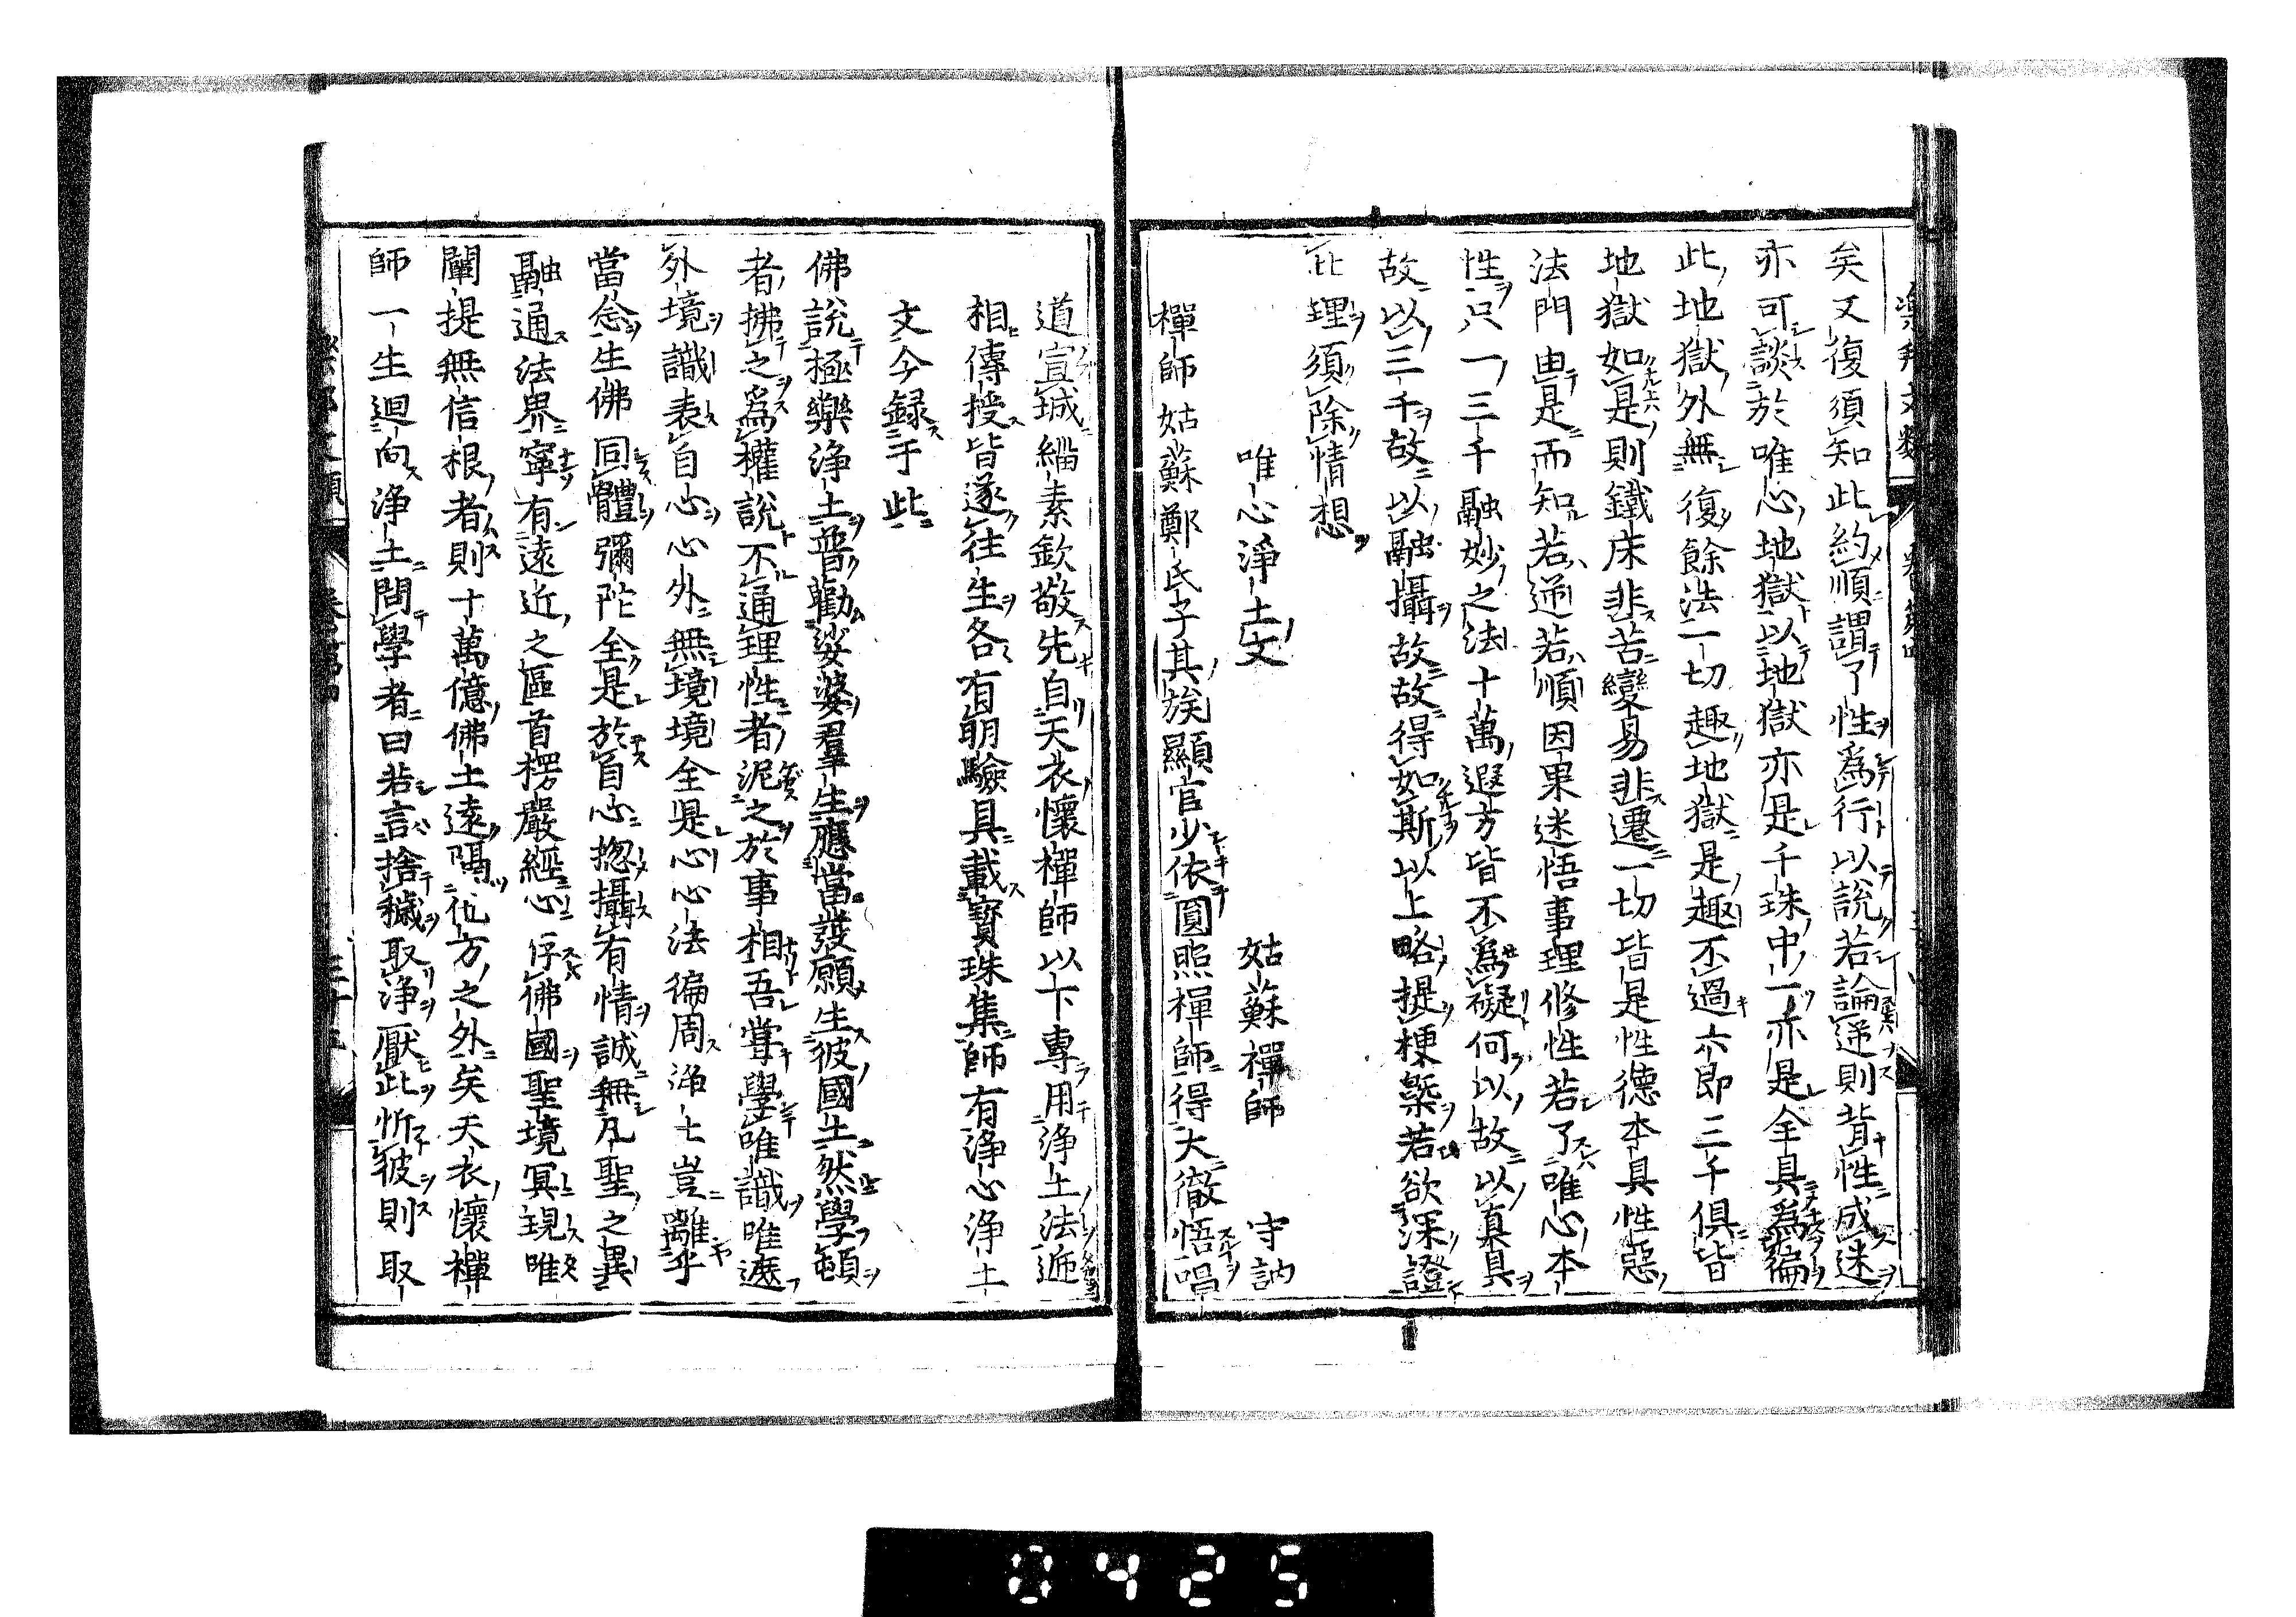 矣又復須知此約順謂了性爲行以說若論逆則背性成迷
亦可談於唯心地獄以地獄亦是千珠中一亦是全具爲徧
此地獄外無復餘法一切趣地獄是趣不過六即三千俱皆
地獄如是則鐵床非苦變易非遷一切皆是性德本具性惡
法門由是而知若逆若順因果迷悟事理修性若了唯心本
性只一三千融妙之法十萬遐方皆不爲礙何以故以真具
故以三千故以融攝故故得如斯以上略提梗槩若欲深證
此理須除情想
唯心淨土文
姑蘇禪師 守訥
禪師姑蘇鄭氏子其族顯官少依圓照禪師得大徹悟唱
道宣城緇素欽敬先自天衣懷禪師以下專用淨土法遞
相傳授皆遂往生各有明驗具載寳珠集師有淨心淨土
文今録于此
佛說極樂淨土普勸娑婆羣生應當發願生彼國土然學頓
者拂之爲權說不通理性者泥之於事相吾嘗學唯識唯遮
外境識表自心心外無境境全是心心法徧周淨土豈離乎
當念生佛同體彌陀全是於自心揔攝有情誠無凡聖之異
融通法界寧有遠近之區首楞嚴經心存佛國聖境冥現唯
闡提無信根者則十萬億佛土遠隔他方之外矣天衣懷禪
師一生迴向淨土問學者曰若言捨穢取淨厭此忻彼則取
樂邦文類 卷第四 三十五